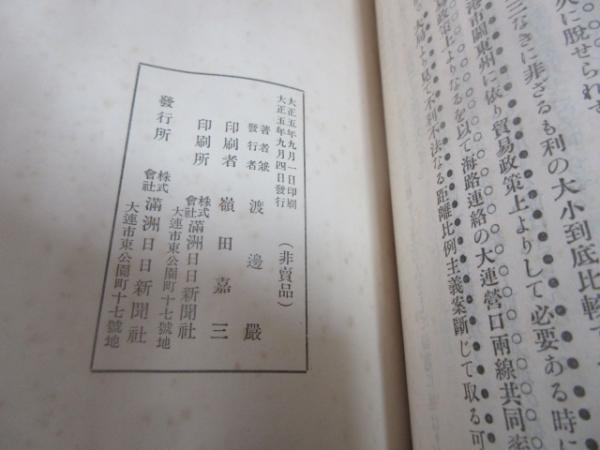 久に脱せられず
三なきに非ざるも利の大小到底比較
港市關東州に依り貿易政策上よりして必要ある時に
易政策上よりなるを以て海路連絡の大連營口兩線共同
大局より見て不利不法なる距離比例主義案斷じて取る可
大正五年九月一日印刷
大正五年九月四日發行
(非賣品)
著者兼發行者 渡邊嚴
印刷者 嶺田嘉三
印刷所 株式會社滿洲日日新聞社
大連市東公園町十七號地
發行所 株式會社滿洲日日新聞社
大連市東公園町十七號地